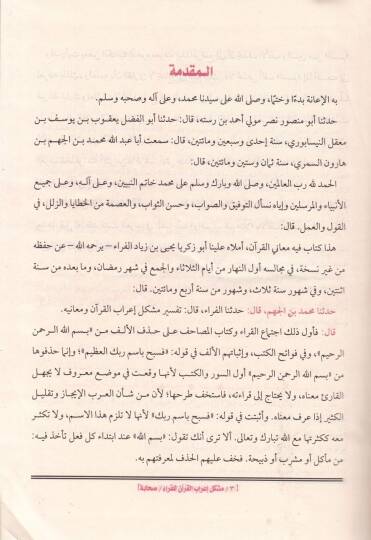 المقدمة
به الإعانة بدءًا وختمًا، وصلى الله على سيدنا محمد، وعلى آله وصحبه وسلم.
حدثنا أبو منصور نصر مولي أحمد بن رسته، قال: حدثنا أبو الفضل يعقوب بن يوسف بن
معقل النيسابوري، سنة إحدى وسبعين ومائتين، قال: سمعت أبا عبد الله محمد بن الجهم بن
هارون السمري، سنة ثمان وستين ومائتين، قال:
الحمد لله رب العالمين، وصلى الله وبارك وسلم على محمد خاتم النبيين، وعلى آله، وعلى جميع
الأنبياء والمرسلين وإياه نسأل التوفيق والصواب، وحسن الثواب، والعصمة من الخطايا والزلل، في
القول والعمل. قال:
هذا كتاب فيه معاني القرآن، أملاه علينا أبو زكريا يحيى بن زياد الفراء – يرحمه الله – عن حفظه
من غير نسخة، في مجالسه أول النهار من أيام الثلاثاء والجمع في شهر رمضان، وما بعده من سنة
اثنتين، وفي شهور سنة ثلاث، وشهور من سنة أربع ومائتين. قال:
حدثنا محمد بن الجهم، قال: حدثنا الفراء، قال: تفسير مشكل إعراب القرآن ومعانيه.
قال: فأول ذلك اجتماع القراء وكتاب المصاحف على حذف الألف من «بسم الله الرحمن
الرحيم»، وفي فواتح الكتب، وإثباتهم الألف في قوله: «فسبح باسم ربك العظيم»؛ وإنما حذفوها
من «بسم الله الرحمن الرحيم» أول السور والكتب لأنها وقعت في موضع معروف لا يجهل
القارئ معناه، ولا يحتاج إلى قراءته، فاستخف طرحها؛ لأن من شأن العرب الإيجاز وتقليل
الكثير إذا عرف معناه. وأثبتت في قوله: «فسبح باسم ربك» لأنها لا تلزم هذا الاسم، ولا تكثر
معه ككثرتها مع الله تبارك وتعالى. ألا ترى أنك تقول: «بسم الله» عند ابتداء كل فعل تأخذ فيه:
من مأكل أو مشرب أو ذبيحة. فخف عليهم الحذف لمعرفتهم به.
[٣٠ / مشكل إعراب القرآن للفراء / صحابة]